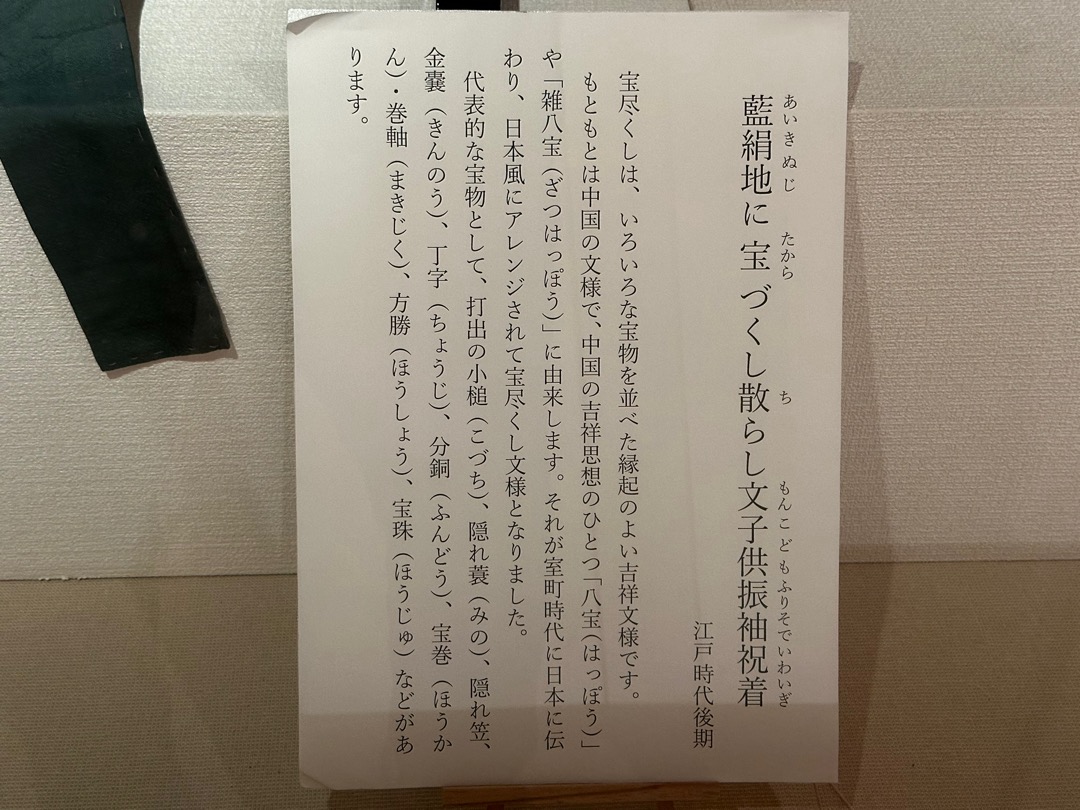 藍絹地に宝づくし散らし文子供振袖祝着
あいきぬじ たから ち もんこどもふりそでいわいぎ
江戸時代後期
宝尽くしは、いろいろな宝物を並べた縁起のよい吉祥文様です。
もともとは中国の文様で、中国の吉祥思想のひとつ「八宝(はっぽう)」
や「雑八宝(ざつはっぽう)」に由来します。それが室町時代に日本に伝
わり、日本風にアレンジされて宝尽くし文様となりました。
代表的な宝物として、打出の小槌(こづち)、隠れ蓑(みの)、隠れ笠、
金嚢(きんのう)、丁字(ちょうじ)、分銅(ふんどう)、宝巻(ほうか
ん)・巻軸(まきじく)、方勝(ほうしょう)、宝珠(ほうじゅ)などがあ
ります。